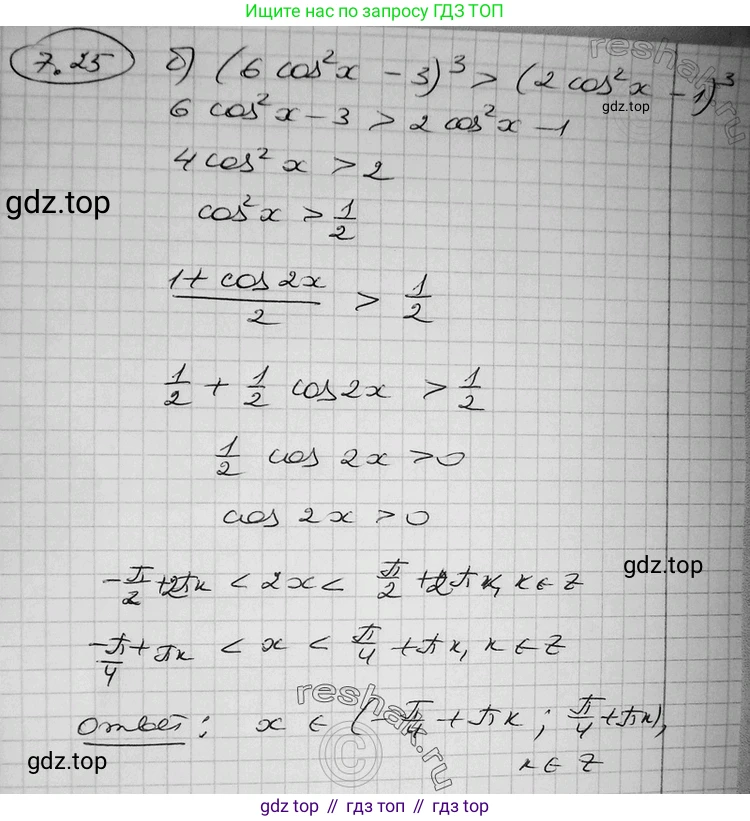 Ищите нас по запросу ГДЗ ТОП
7.25 б) (6 cos²x - 3)³ > (2 cos²x - 1)³
reshak.ru
gdz.top
6 cos²x - 3 > 2 cos²x - 1
4 cos²x > 2
gdz.top
cos²x > 1/2
(1 + cos 2x)/2 > 1/2
1/2 + 1/2 cos 2x > 1/2
1/2 cos 2x > 0
cos 2x > 0
gdz.top
-π/2 + 2πk < 2x < π/2 + 2πk, k ∈ Z
-π/4 + πk < x < π/4 + πk, k ∈ Z
reshak.ru
Ответ: x ∈ (-π/4 + πk ; π/4 + πk),
k ∈ Z
©
gdz.top
gdz top // гдз топ // gdz top